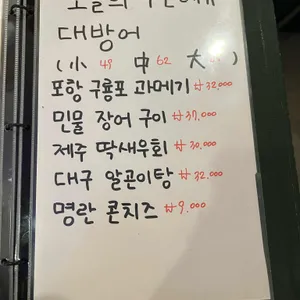 오늘의
대방어
(小 48 中 62 大
포항 구룡포 과메기 ₩32,000
민물 장어 구이 ₩37,000
제주 딱새우회 ₩30,000
대구 알곤이탕 ₩32,000
명란 콘치즈 ₩9,000